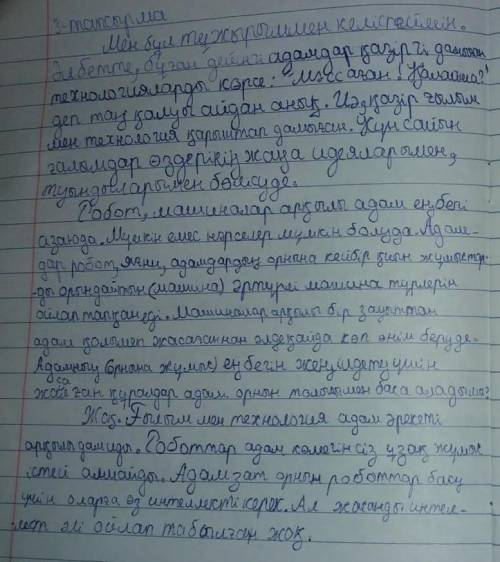 3-тапсырма
Мен бұл тұжырыммен келіспеймін.
Әлбетте, бұған дейінгі адамдар қазіргі дамыған
технологияларды көрсе: "Мәссаған! Қалайша?"
деп таң қалуы айдан анық. Иә, қазір ғылым
мен технология қарыштап дамыған. Күн сайын
ғалымдар өздерінің жаңа идеяларымен,
туындыларымен бөлісуде.
Робот, машиналар арқылы адам еңбегі
азаюда. Мүмкін емес нәрселер мүмкін болуда. Адам-
дар робот, яғни, адамдардың орнына кейбір қиын жұмыстар-
ды орындайтын (машина) әртүрлі машина түрлерін
ойлап тапқан еді. Машиналар арқылы бір зауыттан
адам қолымен жасағаннан әлдеқайда көп өнім беруде.
Адамның (орнына жұмыс) еңбегін жеңілдету үшін
жасаған құралдар адам орнын толығымен баса алады ма?
Жоқ. Ғылым мен технология адам әрекеті
арқылы дамиды. Роботтар адам көмегінсіз ұзақ жұмыс
істей алмайды. Адамзат орнын роботтар басу
үшін оларға өз интеллекті керек. Ал жасанды интел-
лект әлі ойлап табылған жоқ.